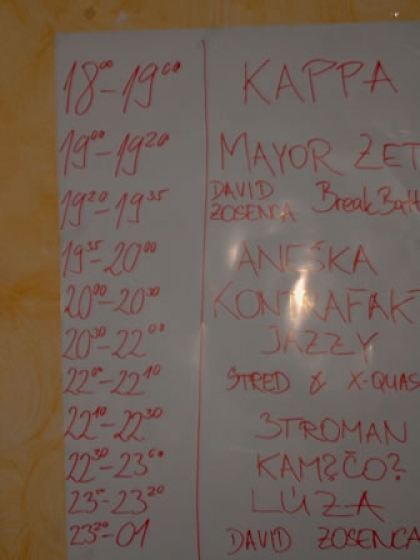 18⁰⁰-19⁰⁰ KAPPA
19⁰⁰-19²⁰ MAYOR ZET
19²⁰-19³⁵ DAVID ZOSENCA BreakBatt
19³⁵-20⁰⁰ ANEŠKA
20⁰⁰-20³⁰ KONTRAFAKT
20³⁰-22⁰⁰ JAZZY
22⁰⁰-22¹⁰ STRED & X-QUAS
22¹⁰-22³⁰ 3TROMAN
22³⁰-23⁰⁰ KAM?ČO?
23⁰⁰-23²⁰ LÚZA
23²⁰-01 DAVID ZOSENCA